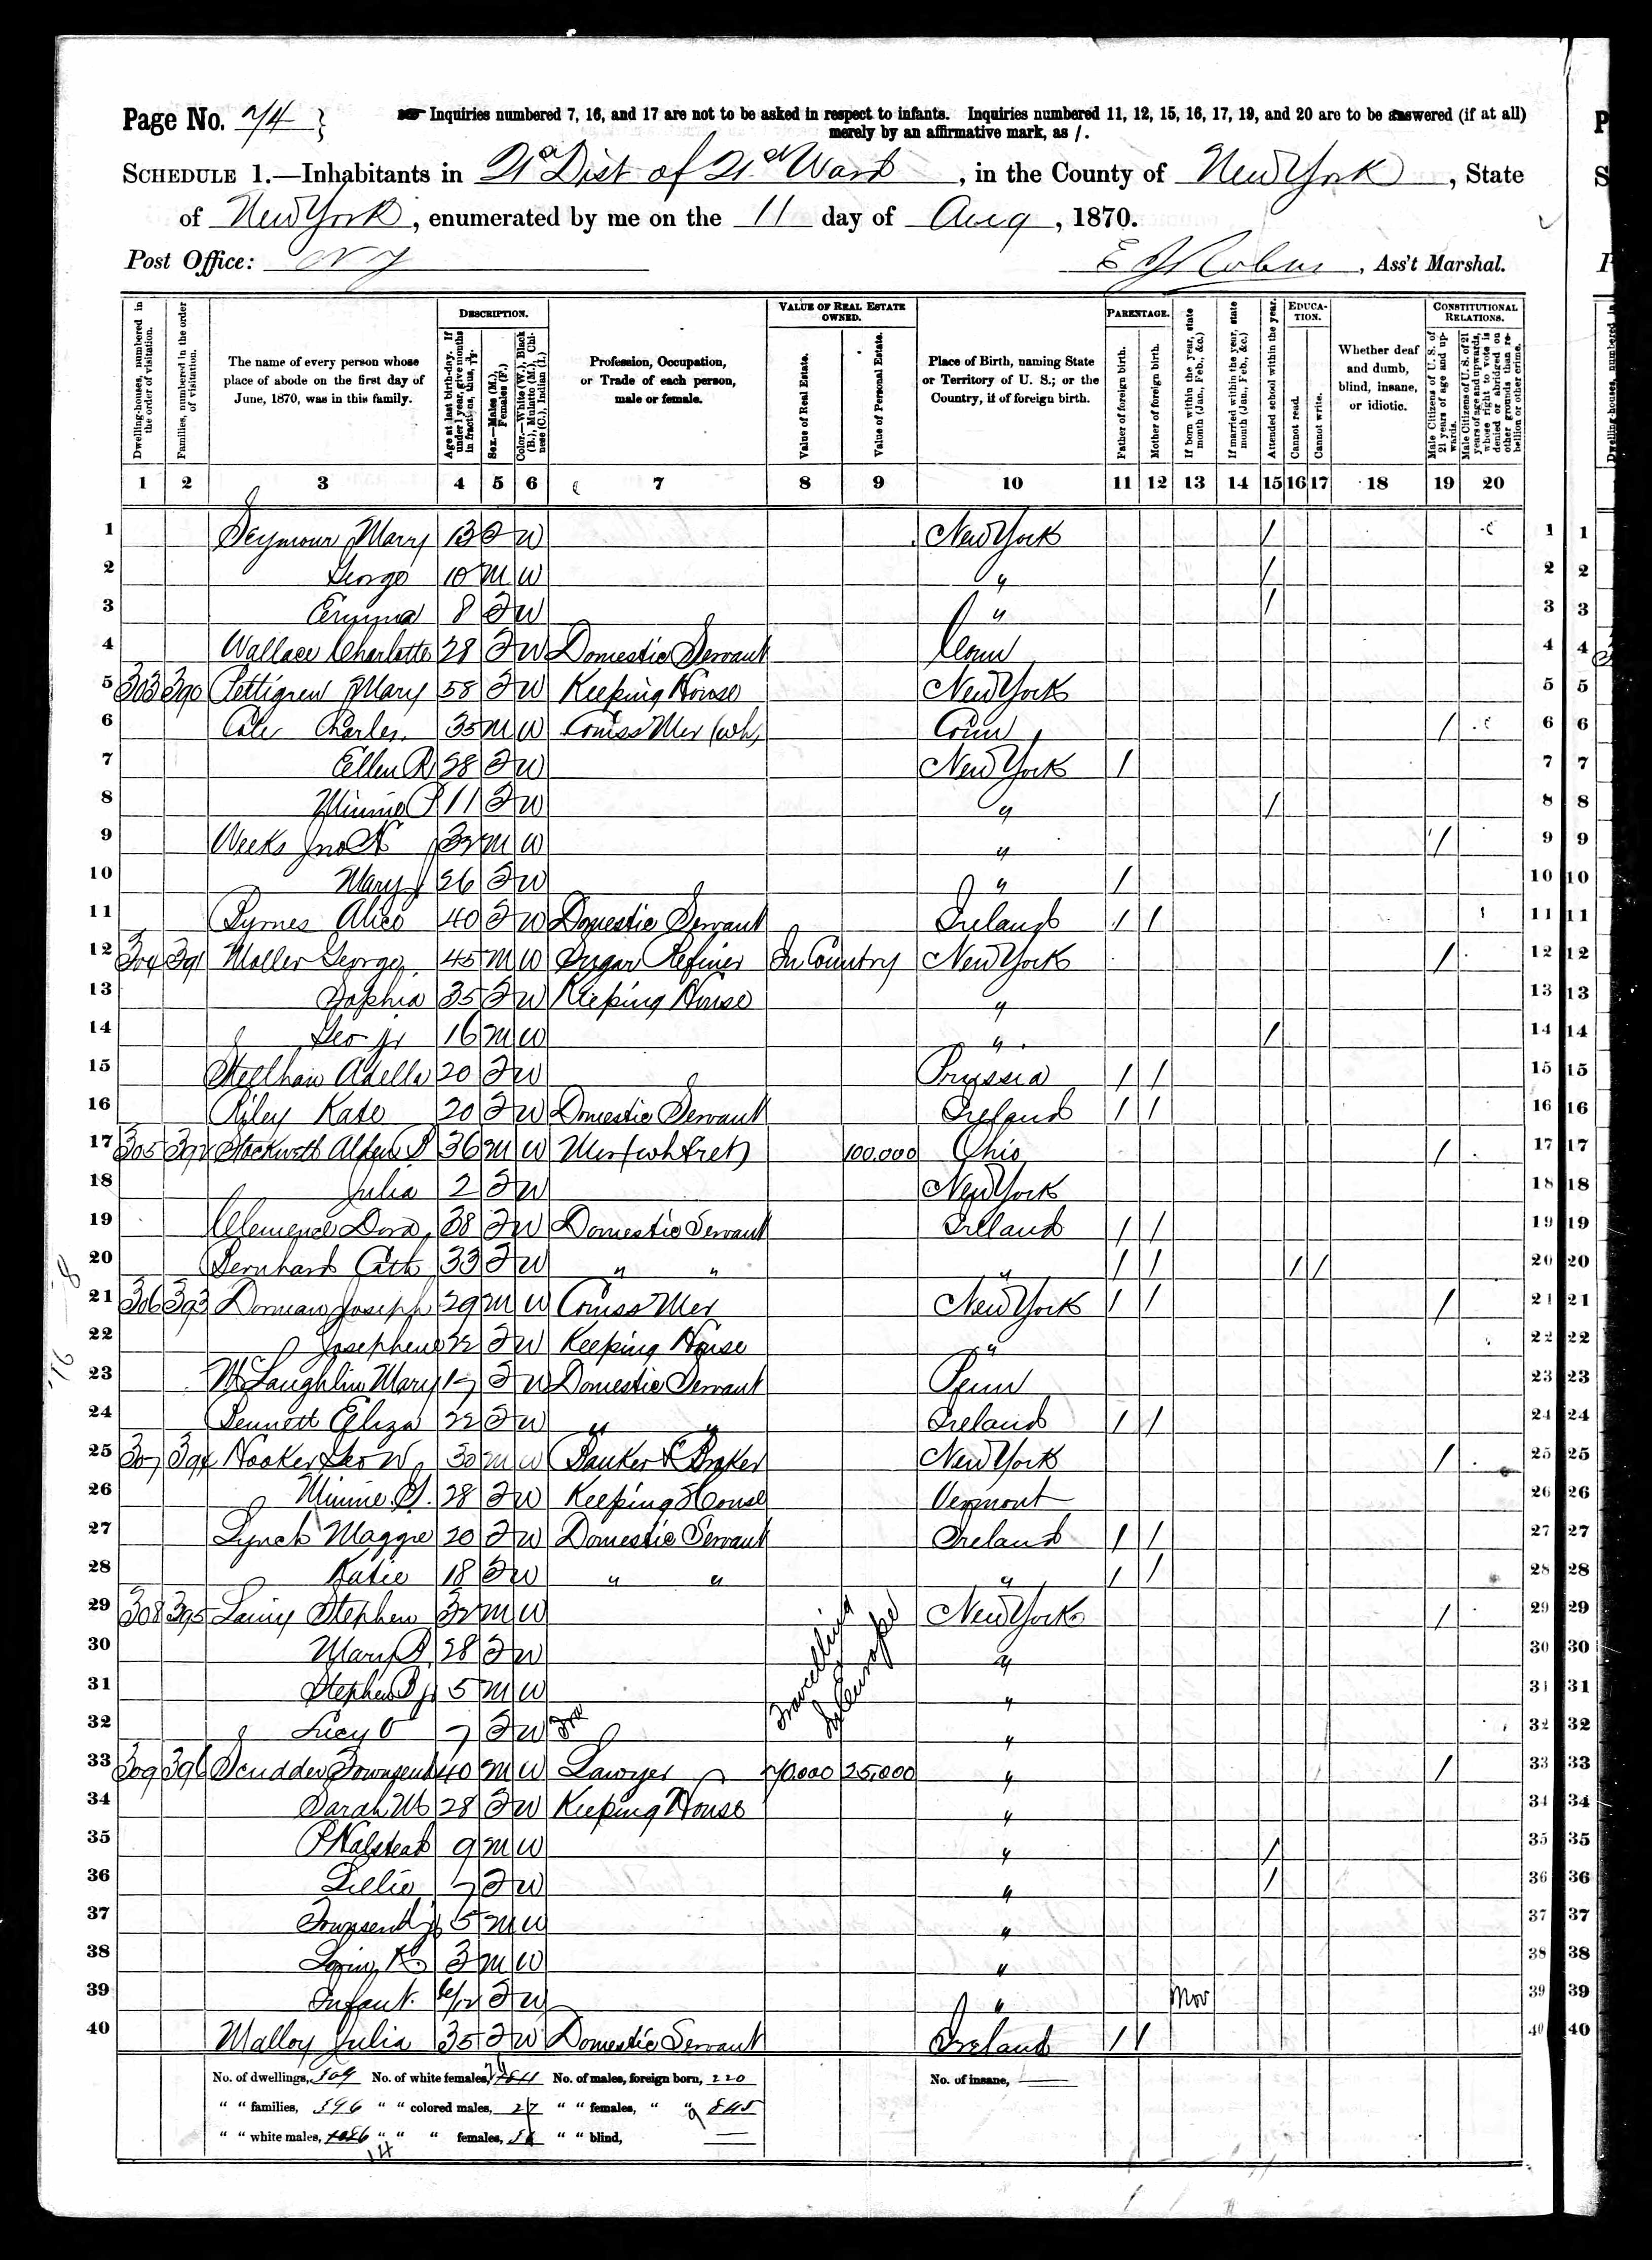 Page No. 74 } Inquiries numbered 7, 16, and 17 are not to be asked in respect to infants. Inquiries numbered 11, 12, 15, 16, 17, 19, and 20 are to be answered (if at all)
merely by an affirmative mark, as /.
SCHEDULE 1.—Inhabitants in 21st Dist of 21st Ward, in the County of New York, State
of New York, enumerated by me on the 11 day of Aug, 1870.
Post Office: N Y
E , Ass't Marshal.
Dwelling-houses, numbered in the order of visitation.
Families, numbered in the order of visitation.
The name of every person whose place of abode on the first day of June, 1870, was in this family.
DESCRIPTION.
Age at last birth-day. If under 1 year, give months in fractions, thus, 3/12.
Sex.—Males (M.), Females (F.)
Color.—White (W.), Black (B.), Mulatto (M.), Chinese (C.), Indian (I.)
Profession, Occupation, or Trade of each person, male or female.
VALUE OF REAL ESTATE OWNED.
Value of Real Estate.
Value of Personal Estate.
Place of Birth, naming State or Territory of U. S.; or the Country, if of foreign birth.
PARENTAGE.
Father of foreign birth.
Mother of foreign birth.
If born within the year, state month (Jan., Feb., &c.)
If married within the year, state month (Jan., Feb., &c.)
Attended school within the year.
EDUCATION.
Cannot read.
Cannot write.
Whether deaf and dumb, blind, insane, or idiotic.
CONSTITUTIONAL RELATIONS.
Male Citizens of U. S. of 21 years of age and upwards.
Male Citizens of U. S. of 21 years of age and upwards, whose right to vote is denied or abridged on other grounds than rebellion or other crime.
1 2 3 4 5 6 7 8 9 10 11 12 13 14 15 16 17 18 19 20
1 Seymour Mary 13 F W New York / 1
2 George 10 M W " / 2
3 Emma 8 F W " / 3
4 Wallace Charlotte 28 F W Domestic Servant Conn 4
5 303 390 Pettigrew Mary 58 F W Keeping House New York 5
6 Cole Charles 35 M W Comiss Mer (wh) Conn / 6
7 Ellen R 28 F W New York / 7
8 Minnie P 11 F W " / 8
9 Weeks Jno 32 M W " / 9
10 Mary J 26 F W " / 10
11 Byrnes Alice 40 F W Domestic Servant Ireland / / 11
12 304 391 Moller George 45 M W Sugar Refiner In Country New York / 12
13 Sophia 35 F W Keeping House " 13
14 Geo Jr 16 M W " / 14
15 Adella 20 F W Prussia / / 15
16 Riley Kate 20 F W Domestic Servant Ireland / / 16
17 305 392 Stockwell Alden B 36 M W Mer (wh & ret) 100.000 Ohio / 17
18 Julia 2 F W New York 18
19 Clemence Dora 38 F W Domestic Servant Ireland / / 19
20 Bernhard Cath 33 F W " " " / / / / 20
21 306 393 Joseph 29 M W Comiss Mer New York / / / 21
22 Josephene 22 F W Keeping House " 22
23 McLaughlin Mary 17 F W Domestic Servant Penn 23
24 Bennett Eliza 22 F W " " Ireland / / 24
25 307 394 Hooker Geo W 30 M W Banker & Broker New York / 25
26 Minnie G. 28 F W Keeping House Vermont 26
27 Lynch Maggie 20 F W Domestic Servant Ireland / / 27
28 Katie 18 F W " " " / / 28
29 308 395 Stephen 32 M W New York / 29
30 Mary 28 F W Travelling In Europe " 30
31 Stephen B Jr 5 M W " 31
32 Lucy O 7 F W Tra " 32
33 309 396 Scudder Townsend 40 M W Lawyer 70.000 25,000 " / 33
34 Sarah M 28 F W Keeping House " 34
35 P Halstead 9 M W " / 35
36 Lillie 7 F W " / 36
37 Townsend Jr 5 M W " 37
38 K 3 M W " 38
39 Infant. 6/12 F W " Nov 39
40 Malloy Julia 35 F W Domestic Servant Ireland / / 40
No. of dwellings, 309 No. of white females, No. of males, foreign born, 220 No. of insane, —
" " families, 396 " " colored males, 27 " " females, " " 845
" " white males, " " " females, " " blind, —
14